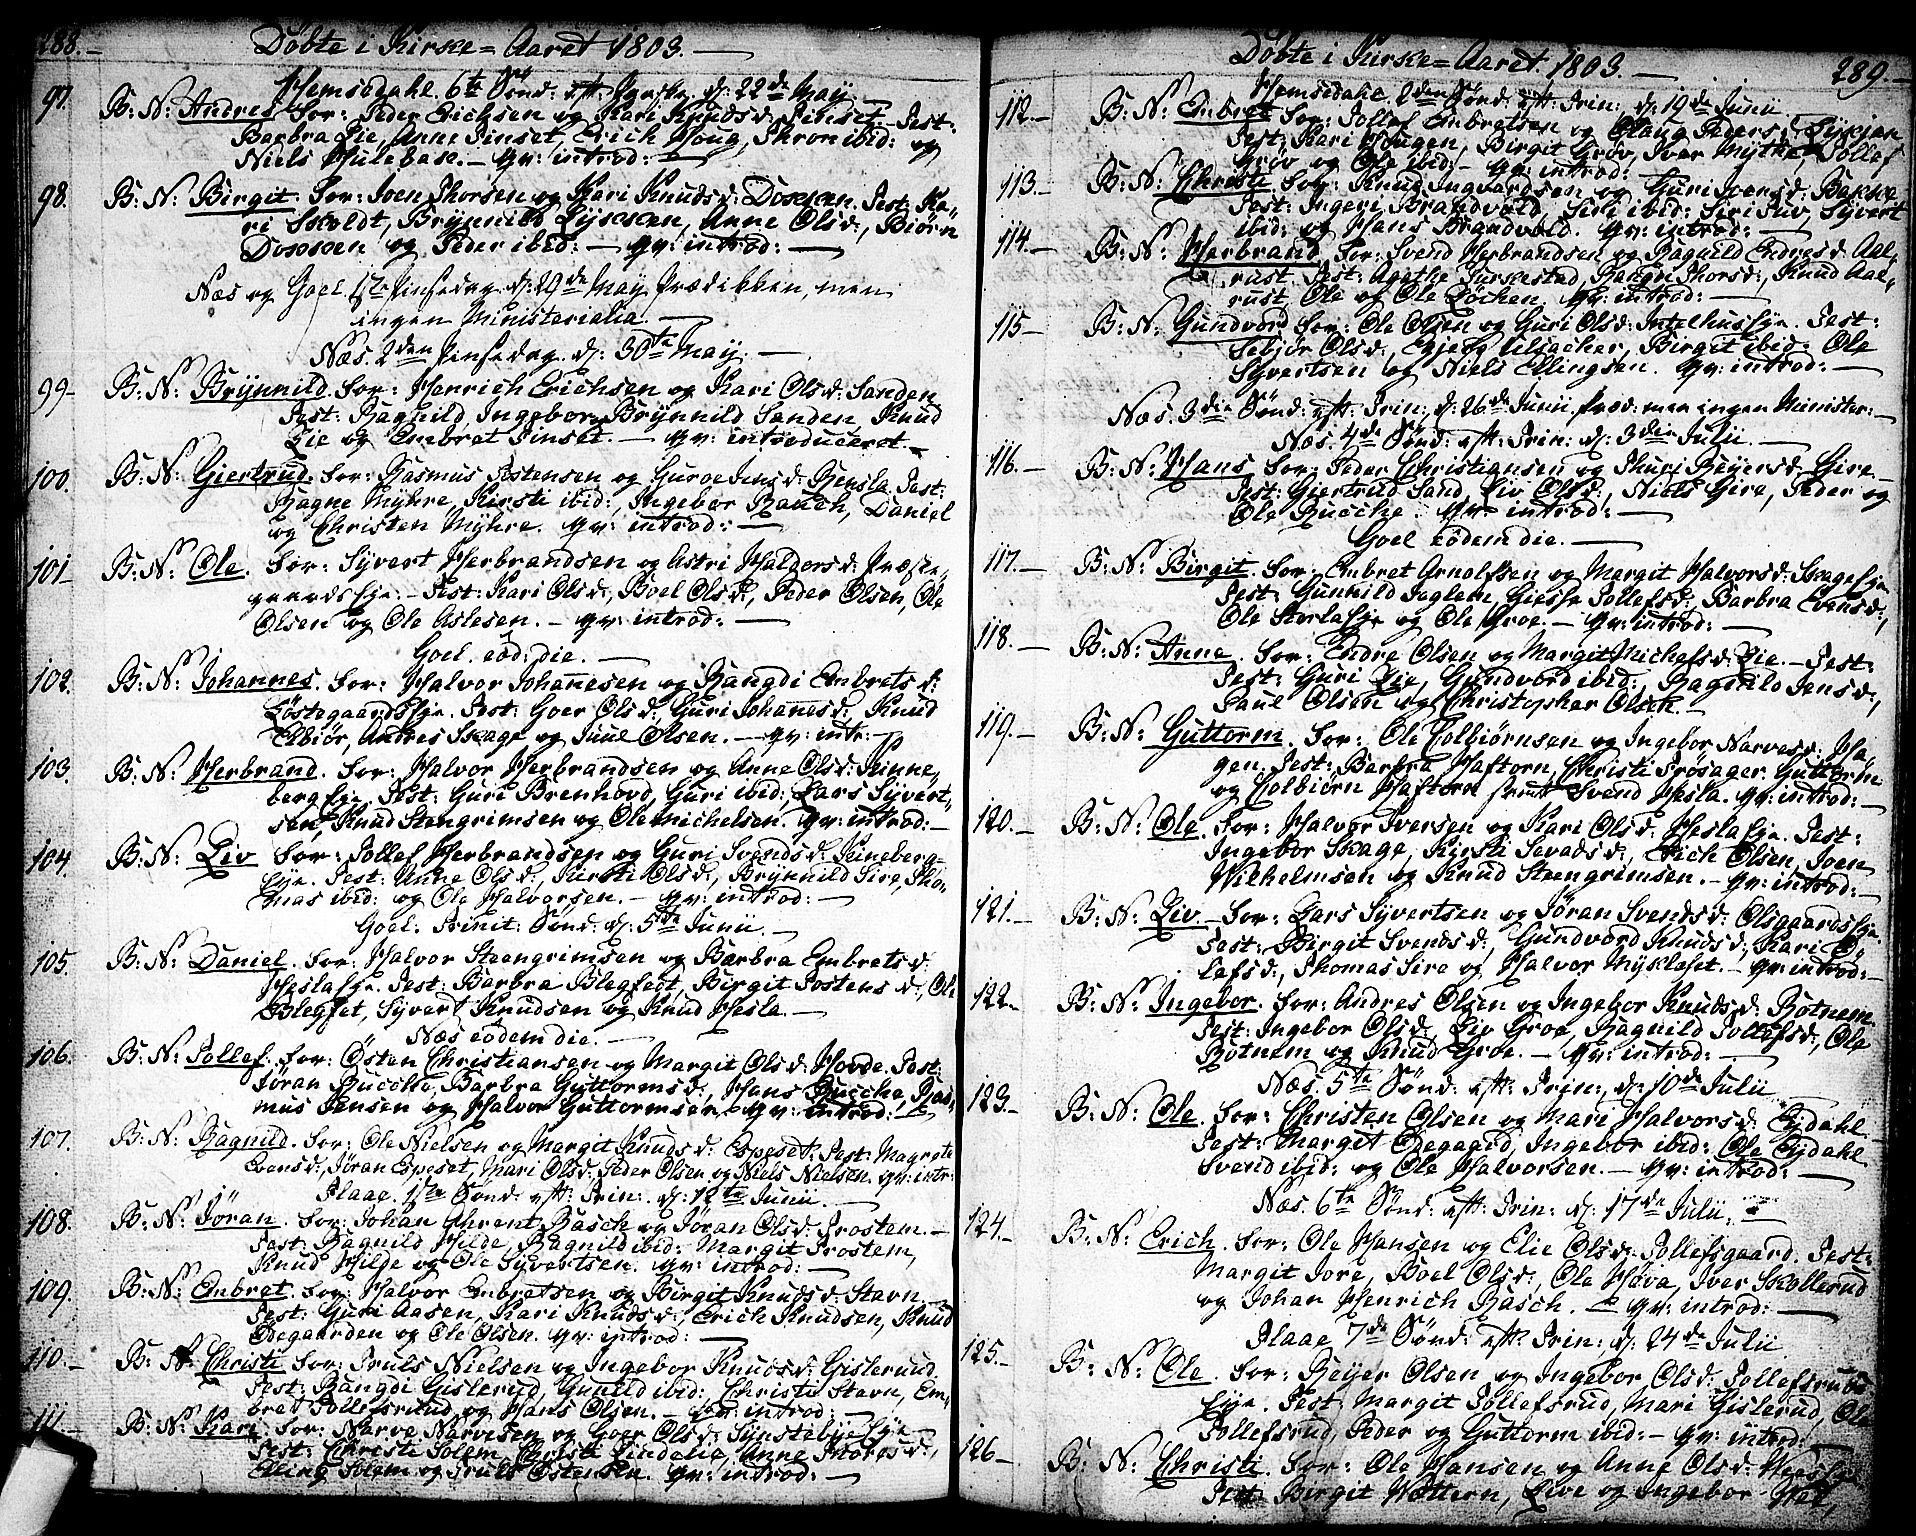 288.
Døbte i Kirke=Aaret 1803.
Hemsedahl 6te Sønd: eft: Paaske d: 22de May
97. B: N: Andres. For: Peder Erichsen og Kari Knudsd: Tinset. Test:
Barbra Lie, Anne Tinset, Erich Houg, Thron ibid: og
Niels Hulebak. qv: introd:
98. B: N: Birgit. For: Iven Thorsen og Kari Knudsd: Dokken. Test: Ka-
ri Skoldt, Brynnild Lykken, Anne Olsd:, Biørn
Dokken og Peder ibid: qv: introd:
Næs og Goel. 1ste Pinsedag d: 29de May Prædikken, men
ingen Ministerialia.
Næs. 2den Pinsedag d: 30te May.
99 B: N: Brynnild. For: Henrich Erichsen og Kari Olsd: Sanden
Test: Ragnild, Ingebor, Brynnild Sanden, Knud
Lie og Embret Tinset. qv: introduceret.
100. B: N: Giertrud. For: Rasmus Østensen og Guroe Jensd: Rensla. Test:
Ragne Myhre, Kirsti ibid:, Ingebor Rauch, Daniel
og Christen Myhre. qv: introd:
101 B: N: Ole. For: Syvert Herbrandsen og Astri Halgorsd: Præste-
gaardseje. Test: Kari Olsd:, Boel Olsd:, Peder Olsen, Ole
Olsen og Ole Aslesen. qv: introd:
Goel. eod: die.
102. B: N: Johannes. For: Halvor Johanesen og Rangdi Embretsd:
Løstegaardseje. Test: Goer Olsd:, Guri Johanesd:, Knud
Elbiør, Andres Skage og Juul Olsen. qv: intr:
103. B: N: Herbrand. For: Halvor Herbrandsen og Anne Olsd: Kinne-
berg Eje. Test: Guri Brenhovd, Guri ibid: Lars Syvert-
sen, Knud Stengrimsen og Ole Michelsen. qv: introd:
104. B: N: Liv For: Tollef Herbrandsen og Guri Svendsd: Kineberg-
Eje. Test: Anne Olsd:, Kirsti Olsd:, Brynnild Sire, Tho-
mas ibid: og Ole Halvorsen. qv: introd:
Goel. Trinit: Sønd: d: 5te Junii.
105. B: N: Daniel. For: Halvor Steengrimsen og Barbra Embretsd:
Heslaeje. Test: Barbra Blegfedt, Birgit Tostensd:, Ole
Blegfet, Syvert Knudsen og Knud Hesla.
Næs eodem die.
106. B: N: Tollef. For: Østen Christiansen og Margit Olsd: Hovde. Test:
Jøran Rucche, Barbra Guttormsd:, Hans Rucche, Ras-
mus Jensen og Halvor Guttormsen. qv: introd:
107. B: N: Ragnild. For: Ole Nielsen og Margit Knudsd: Espeset. Test: Magrete
Evensd:, Jøran Espeset, Mari Olsd:, Peder Olsen og Niels Nielsen. qv: intr:
Flaae. 1ste Sønd: eft: Trin: d: 12te Junii.
108. B: N: Jøran. For: Johan Ahrent Rasch og Jøran Olsd: Trostem.
Test: Ragnild Hilde, Ragnild ibid: Margit Trostem,
Knud Hilde og Ole Syvertsen. qv: introd:
109. B: N: Embret. For: Halvor Embretsen og Birgit Knudsd: Stavn.
Test: Guri Aasen, Kari Knudsd:, Erich Knudsen, Knud
Ødegaarden og Ole Olsen. qv: introd:
110. B: N: Christi For: Truls Nielsen og Ingebor Knudsd: Gislerud.
Test: Rangdi Gislerud, Gunild ibid: Christi Stavn, Em-
bret Tollefsrud og Hans Olsen. qv: introd:
111. B: N: Kari. For: Narve Narvesen og Goer Olsd: Synstebye Eje
Test: Christi Solem, Christi Lindelie, Anne Thoresd:,
Elling Solem og Truls Østensen. qv: introd:
Døbte i Kirke=Aaret 1803.
289.
Hemsedahl 2den Sønd: eft: Trin: d: 19de Junii
112. B: N: Embret For: Tollef Embretsen og Olaug Peders: Lykjen
Test: Kari Hougen, Birgit Grøv, Iver Mythe, Tollef
Grøv og Ole ibid: qv: introd:
113. B: N: Christi For: Knud Ingvardsen og Guri Ivensd: Bakke
Test: Ingeri Brandvold, Sidi ibid: Siri Juv, Syvert
ibid: og Hans Brandvold. qv: introd:
114. B: N: Herbrand. For: Svend Herbrandsen og Ragnild Endresd: Aal-
rust. Test: Agathe Kirkestad, Rangdi Thorsd:, Knud Aal-
rust, Ole og Ole Løchen. qv: introd:
115 B: N: Gundvord For: Ole Olsen og Guri Olsd: Intelhuseje. Test:
Sebjør Olsd:, Birgit ibid: Ole
Syvertsen og Niels Ellingsen. qv: introd:
Næs. 3die Sønd: eft: Trin: d: 26de Junii Præd: men ingen Minister:
Næs. 4de Sønd: eft: Trin: d: 3die Julii.
116. B: N: Hans For: Peder Christiansen og Thuri Reyersd: Gire.
Test: Giertrud Sand, Liv Olsd:, Niels Gire, Peder og
Ole Rucche. qv: introd:
Goel eodem die.
117. B: N: Birgit. For: Embret Arnolfsen og Margit Halvorsd: Skageeje
Test: Gunnild Teglem, Giesse Tollefsd:, Barbra Evensd:,
Ole Storlaeje og Ole Groe. qv: introd:
118. B: N: Anne. For: Endre Olsen og Margit Michelsd: Lie. Test:
Test: Guri Lie, Gundvord ibid:, Ragnild Jensd:,
Paul Olsen og Christopher Olsen.
119. B: N: Guttorm. For: Ole Colbiørnsen og Ingebor Narvesd: Ha-
gen. Test: Barbra Haftorn, Christi Trøsager, Guttorm
og Colbiørn Haftorn samt Svend Hesla. qv: introd:
120. B: N: Ole. For: Halvor Iversen og Kari Olsd: Heslaeje. Test:
Ingebor Skage, Kirsti Sevadsd:, Erich Olsen, Iven
Wilhelmsen og Knud Steengrimsen. qv: introd:
121. B: N: Liv. For: Lars Syvertsen og Jøran Svendsd: Olsgaardseje.
Test: Birgit Svendsd:, Gundvord Knudsd:, Kari O-
lafsd:, Thomas Sire og Halvor Myklaset. qv: introd:
122. B: N: Ingebor. For: Andres Olsen og Ingebor Knudsd: Botnem.
Test: Ingebor Olsd:, Liv Groe, Ragnild Tollefsd:, Ole
Botnem og Knud Groe. qv: introd:
Næs. 5te Sønd: eft: Trin: d: 10de Julii
123. B: N: Ole. For: Christen Olsen og Mari Halvorsd: Eydahl
Test: Margit Ødegagd, Ingebor ibid: Ole Eydahl
Svend ibid: og Ole Halvorsen. qv: introd:
Næs. 6te Sønd: eft: Trin: d: 17de Julii.
124. B: N: Erich. For: Ole Hansen og Elie Olsd: Tollefsgaard. Test:
Margit Jore, Boel Olsd:, Ole Høva, Iver Skallerud
og Johan Henrich Rasch. qv: introd:
Flaae 7de Sønd: eft: Trin: d: 24de Julii
125. B: N: Ole For: Reyer Olsen og Ingebor Olsd: Tollefsruds
Eje. Test: Margit Tollefsrud, Mari Gislerud, Ole
Tollefsrud, Peder og Guttorm ibid: qv: introd:
126 B: N: Christi. For: Ole Hansen og Anne Olsd:
Test: Birgit Wottern, Live og Ingebor